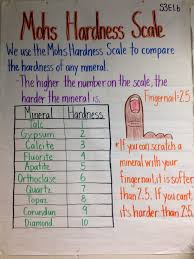 S3E1.b
Mohs Hardness Scale
We use the Mohs Hardness Scale to compare
the hardness of any mineral.
-The higher the number on the scale, the
harder the mineral is.
Fingernail-2.5
Mineral Hardness
Talc 1
Gypsum 2
Calcite 3
Fluorite 4
Apatite 5
Orthoclase 6
Quartz 7
Topaz 8
Corundum 9
Diamond 10
*If you can scratch a
mineral with your
fingernail, it is softer
than 2.5. If you can't,
it's harder than 2.5.